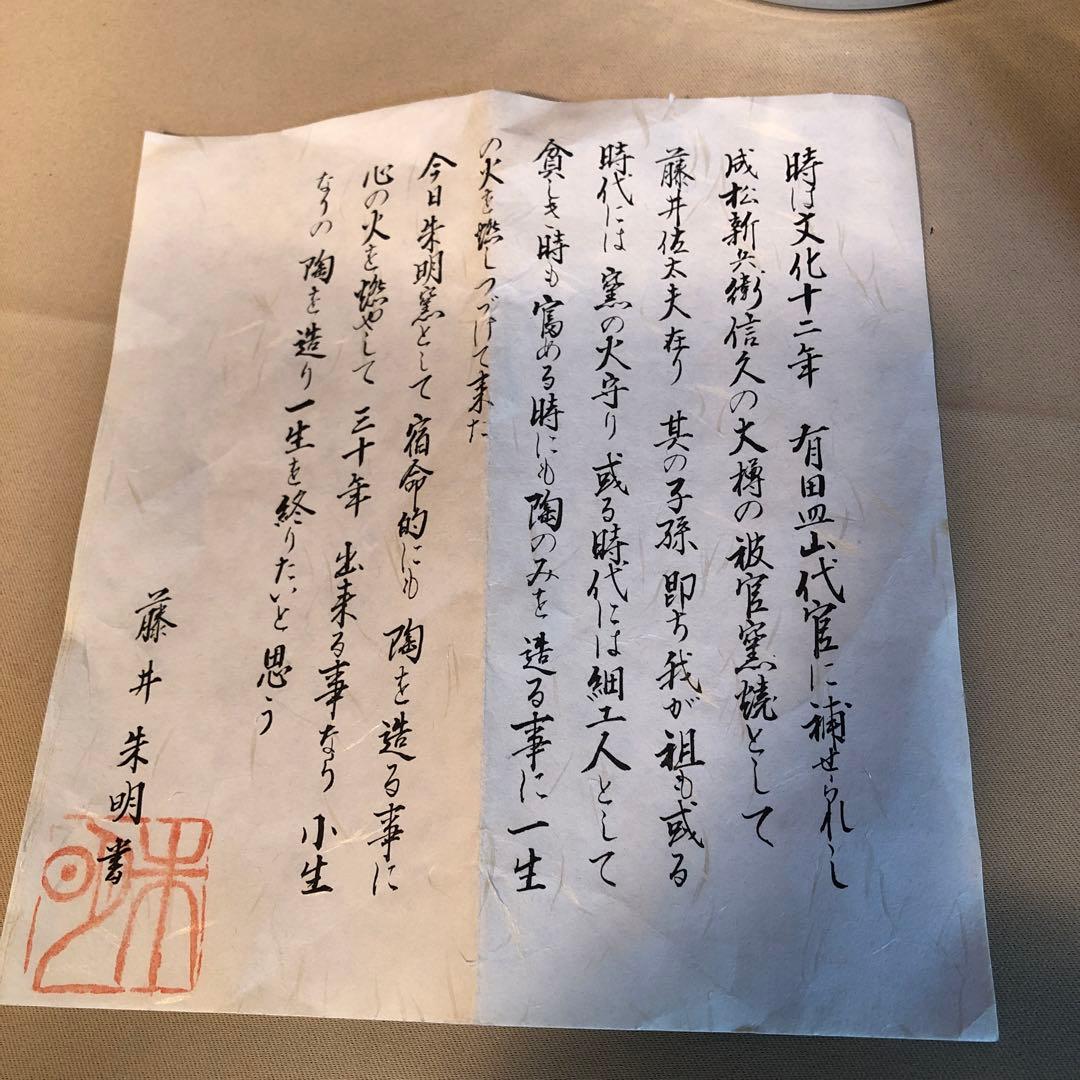 時は文化十二年　有田皿山代官に補せられし
成松新兵衛信久の大樽の被官窯焼として
藤井佐太夫在り　其の子孫即ち我が祖も或る
時代には窯の火守り或る時代には細工人として
貧しき時も富める時にも陶のみを造る事に一生
の火を燃しつづけて来た
今日朱明窯として宿命的にも陶を造る事に
心の火を燃やして三十年　出来る事なら小生
なりの陶を造り一生を終りたいと思う
藤井朱明書
朱明